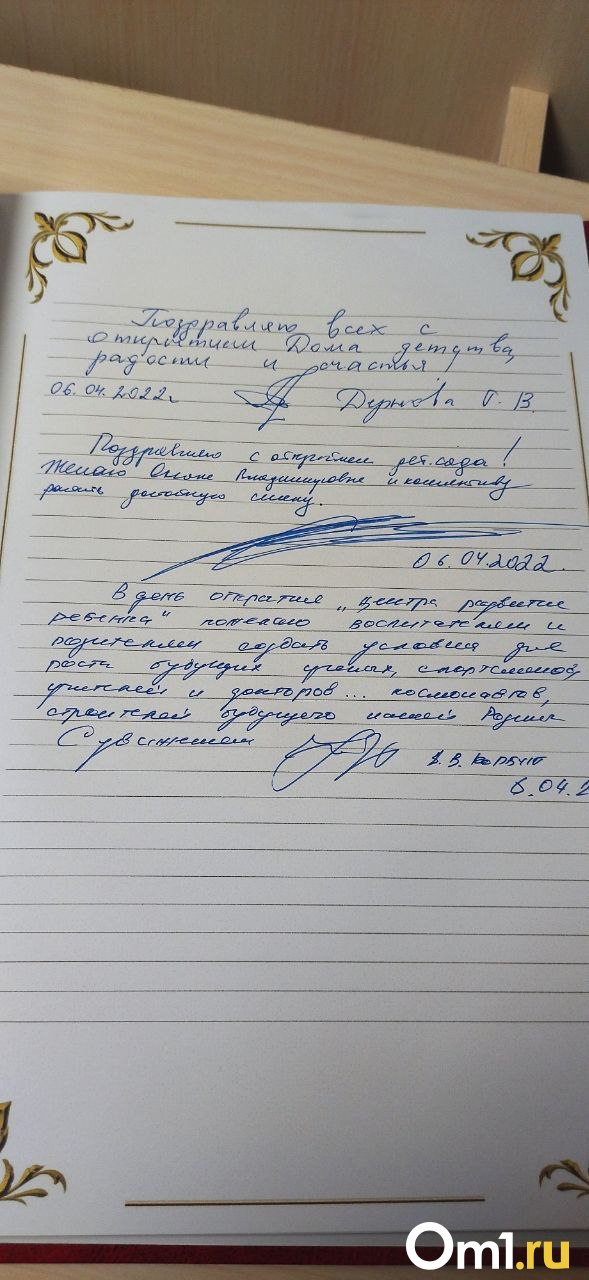 Поздравляю всех с
открытием Дома детства,
радости и счастья!
06.04.2022г Дернова Г. В.
Поздравляю с открытием дет.сада!
Желаю Владимировне и коллективу
растить достойную смену.
06.04.2022.
В день открытия „Центра развития
ребенка" пожелаю воспитателям и
родителям создать условия для
роста будущих ученых, спортсменов,
учителей и докторов... космонавтов,
строителей будущего нашей Родины
С уважением
В. В. Корбут
6.04.2
Om1.ru